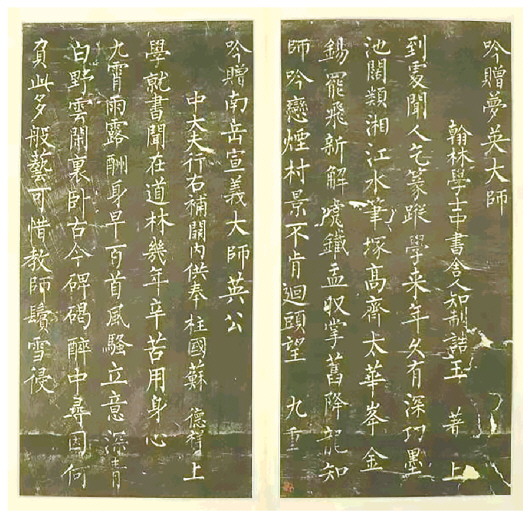 吟贈夢英大師
翰林學士中書舍人知制誥王著上
到處聞人乞篆蹤學來年久有深功墨
池闊類湘江水筆塚高齊太華峯金
錫罷飛新解虎鐵盂収掌舊降龍知
師吟戀煙村景不肯迴頭望九重
吟贈南岳宣義大師英公
中大夫行右補闕內供奉柱國蘇德祥上
學就書聞在道林幾年辛苦用身心
九霄雨露酬身早百首風騷立意深青
白野雲閑裏卧古今碑碣醉中尋因何
負此多般藝可惜教師鬢雪侵